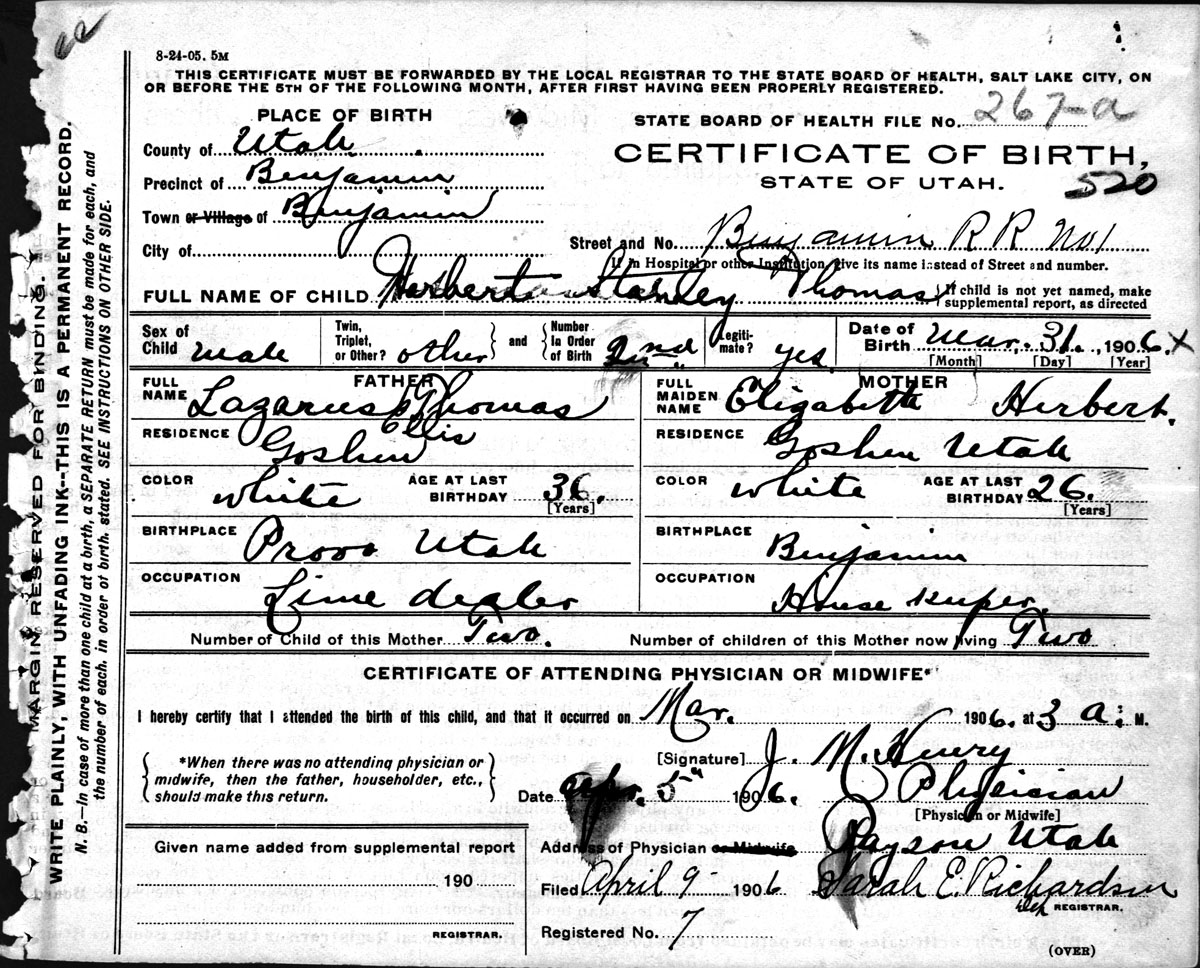 8-24-05. 5M
THIS CERTIFICATE MUST BE FORWARDED BY THE LOCAL REGISTRAR TO THE STATE BOARD OF HEALTH, SALT LAKE CITY, ON
OR BEFORE THE 5TH OF THE FOLLOWING MONTH, AFTER FIRST HAVING BEEN PROPERLY REGISTERED.
PLACE OF BIRTH
STATE BOARD OF HEALTH FILE No. 267-a
County of Utah
CERTIFICATE OF BIRTH,
Precinct of Benjamin
STATE OF UTAH. 520
Town or Village of Benjamin
City of
Street and No. Benjamin R R No 1
If in Hospital or other Institution, give its name instead of Street and number.
FULL NAME OF CHILD Herbert Stanley Thomas
If child is not yet named, make
supplemental report, as directed
Sex of Child Male
Twin, Triplet, or Other? other
and
Number In Order of Birth 2nd
Legitimate? yes
Date of Birth Mar. 31, 1906. X
[Month] [Day] [Year]
FATHER
FULL NAME Lazarus Ellis Thomas
MOTHER
FULL MAIDEN NAME Elizabeth Herbert.
RESIDENCE Goshen
RESIDENCE Goshen Utah
COLOR white
AGE AT LAST BIRTHDAY 36.
[Years]
COLOR white
AGE AT LAST BIRTHDAY 26.
[Years]
BIRTHPLACE Provo Utah
BIRTHPLACE Benjamin
OCCUPATION Lime dealer
OCCUPATION House keeper.
Number of Child of this Mother Two.
Number of children of this Mother now living Two
CERTIFICATE OF ATTENDING PHYSICIAN OR MIDWIFE*
I hereby certify that I attended the birth of this child, and that it occurred on Mar. 1906. at 3 a. M.
*When there was no attending physician or
midwife, then the father, householder, etc.,
should make this return.
[Signature] J. M. Henry
Date Apr. 5th 1906.
Physician
[Physician or Midwife]
Address of Physician or Midwife Payson Utah
Given name added from supplemental report
190
REGISTRAR.
Filed April 9 1906 Sarah E. Richardson
REGISTRAR.
Registered No. 7
(OVER)
MARGIN RESERVED FOR BINDING.
WRITE PLAINLY, WITH UNFADING INK--THIS IS A PERMANENT RECORD.
N. B.—In case of more than one child at a birth, a SEPARATE RETURN must be made for each, and
the number of each, in order of birth, stated. SEE INSTRUCTIONS ON OTHER SIDE.